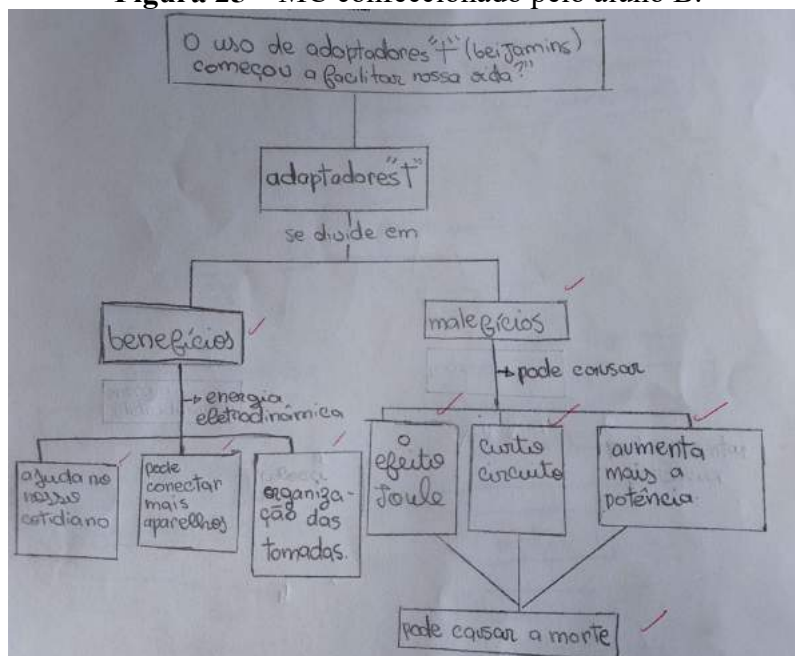 Figura 25 – MC confeccionado pelo aluno B.
O uso de adaptadores "T" (beijamins)
começou a facilitar nossa vida?"
adaptadores "T"
se divide em
benefícios
malefícios
energia
eletrodinâmica
pode causar
ajuda no
nosso
cotidiano
pode
conectar
mais
aparelhos
organiza-
ção das
tomadas.
o
efeito
Joule
curto
circuito
aumenta
mais a
potência
pode causar a morte